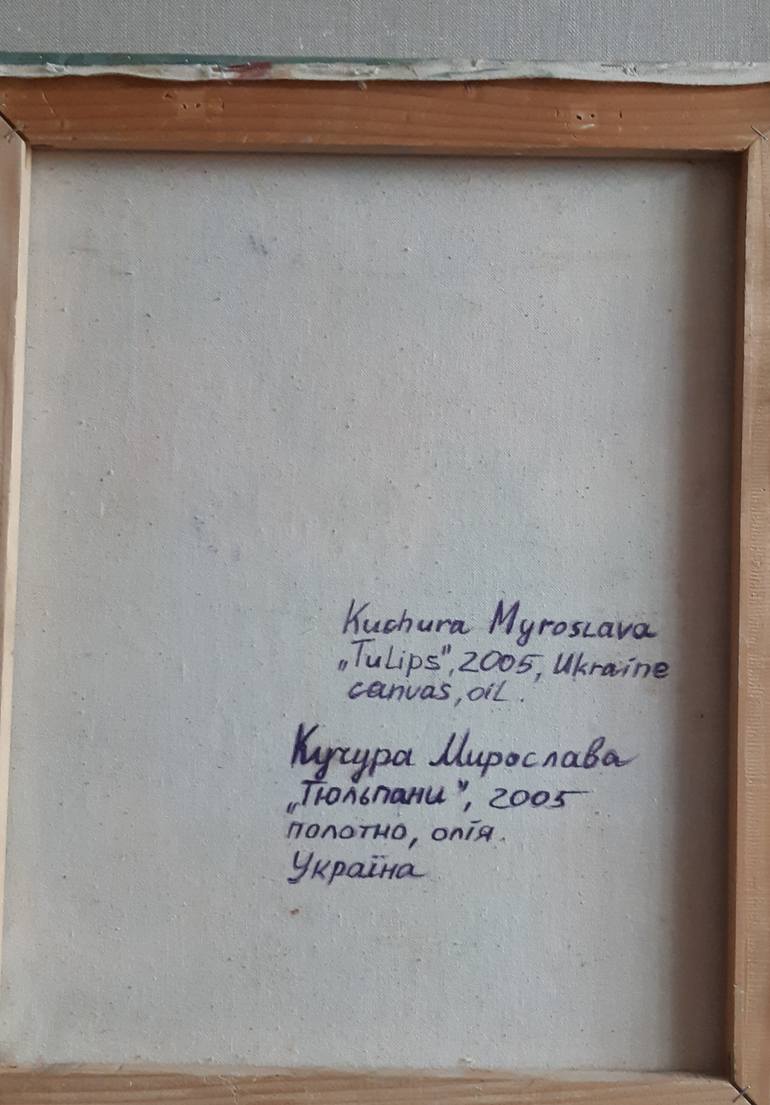 Kuchura Myroslava
„Tulips", 2005, Ukraine
canvas, oil.
Кучура Мирослава
„Тюльпани", 2005
полотно, олія.
Україна